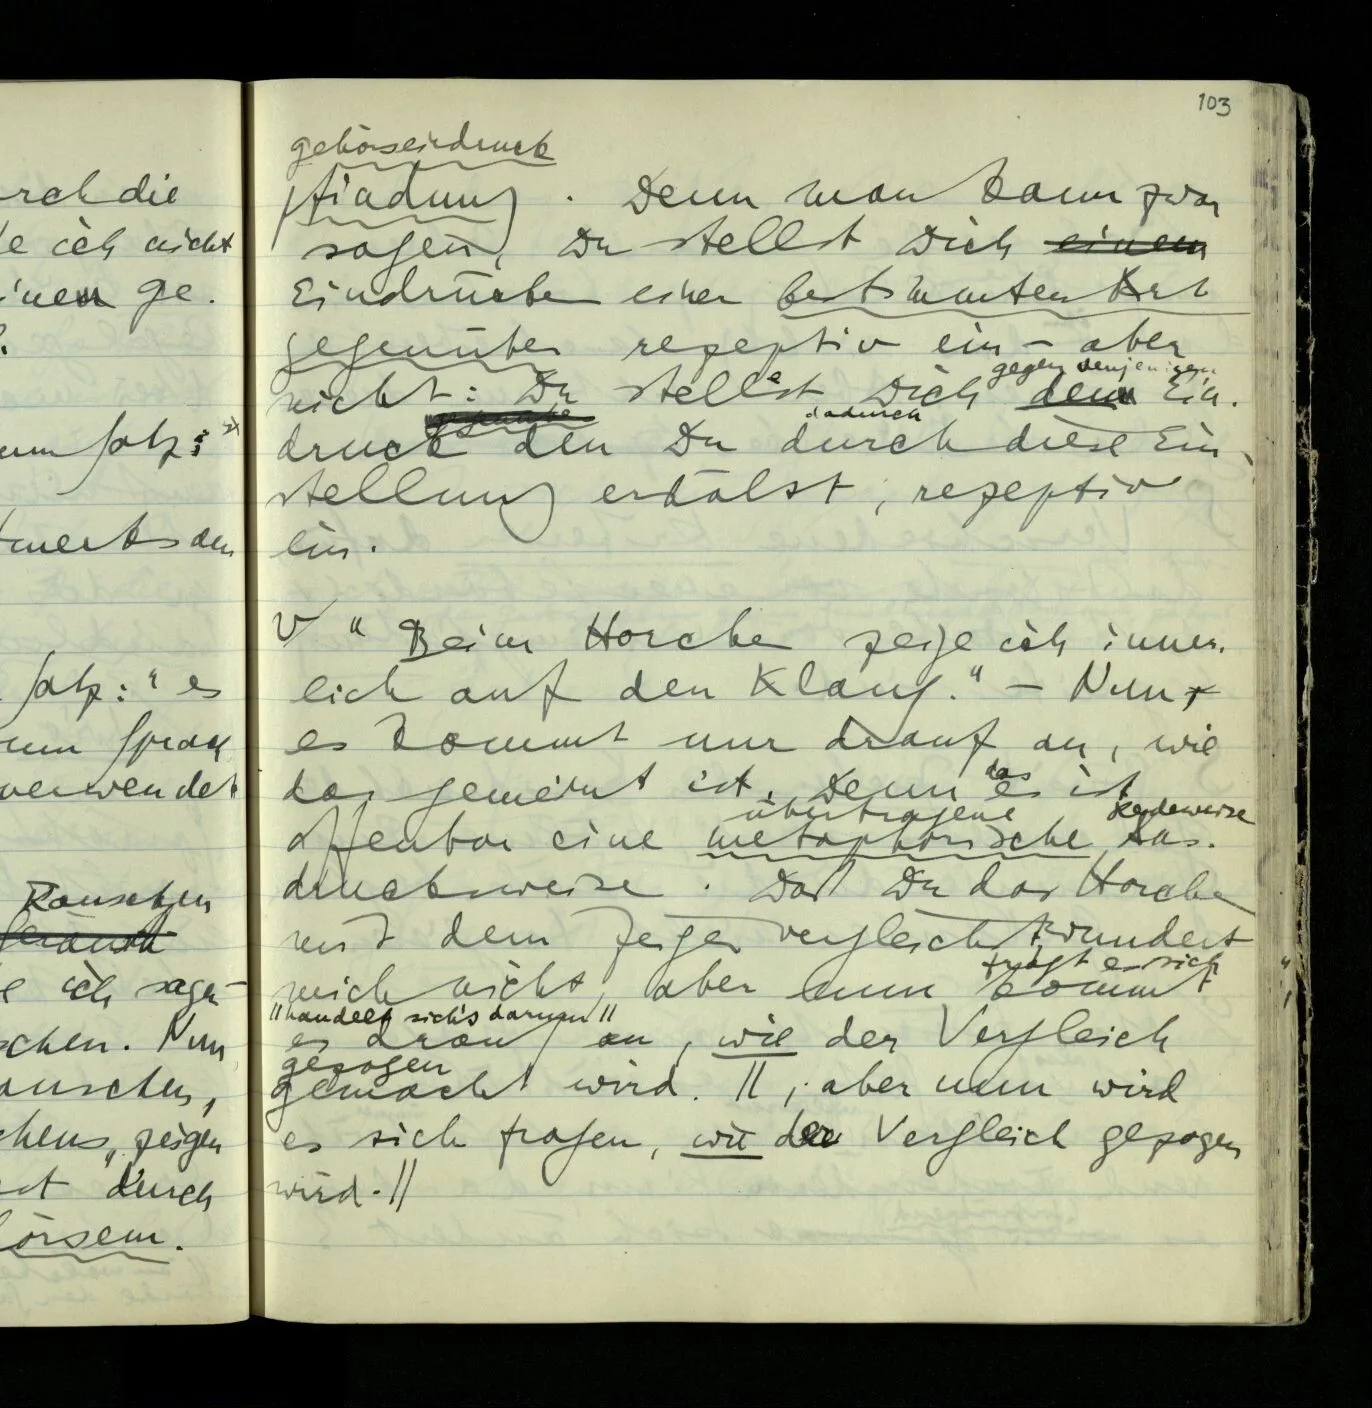 103
rch die
e ich nicht
inen ge.
um Satz:
merks den
Satz: " es
um Sprach
verwendet
Rauschen
Geräusch
e ich sagen
schen. Nun
auschen,
chens, zeigen
st durch
hörsein.
gehörseindruck
pfindung. Denn man kann zwar
sagen, Du stellst Dich einem
Eindrücken einer bestimmten Art
gegenüber rezeptiv ein – aber
gegen denjenigen
nicht: Du stellst Dich dem Ein-
dadurch
druck den Du durch diese Ein-
stellung erhälst, rezeptiv
ein.
V " Beim Horchen zeige ich inner-
lich auf den Klang." – Nun,
es kommt nur drauf an, wie
das
das gemeint ist. Denn es ist
übertragene Redeweise
offenbar eine metaphorische Aus-
drucksweise. Daß Du das Horchen
mit dem Zeigen vergleichst wundert
frägt es sich
mich nicht, aber nun kommt
\\handelt sich's darum\\
es drauf an, wie der Vergleich
gezogen
gemacht wird. \\; aber nun wird
es sich fragen, wie der Vergleich gezogen
wird.\\